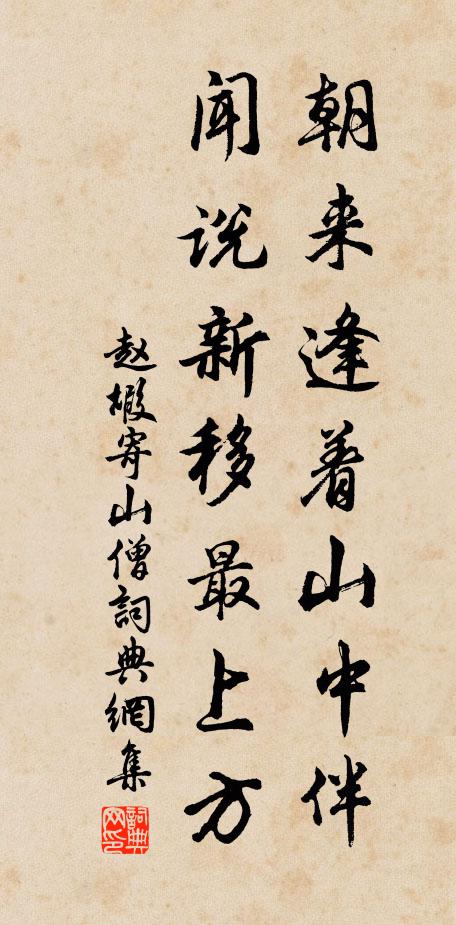 朝来逢着山中伴
闻说新移最上方
赵嘏寄山僧詞典網集
詞典网印